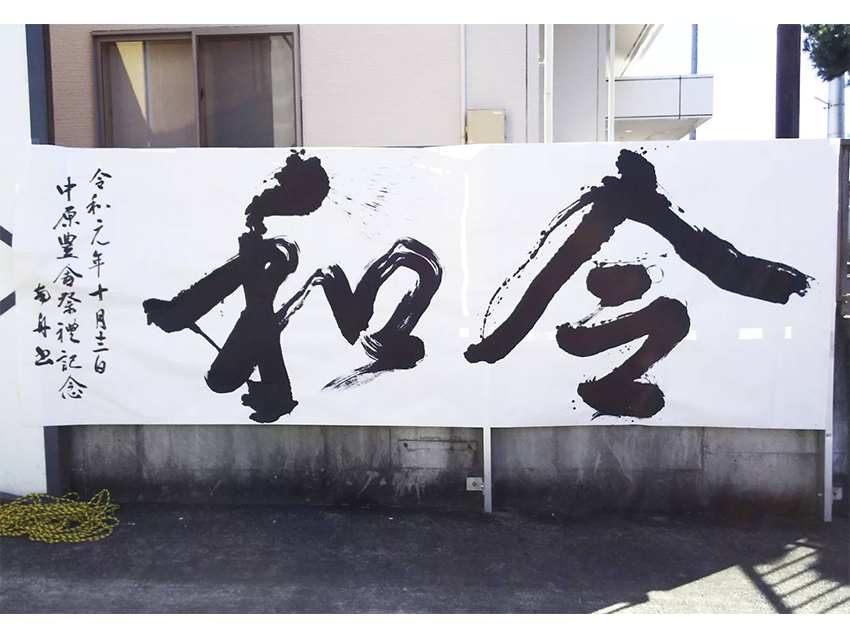 令和
令和元年十月十一日
中原豊會祭禮記念
南舟書